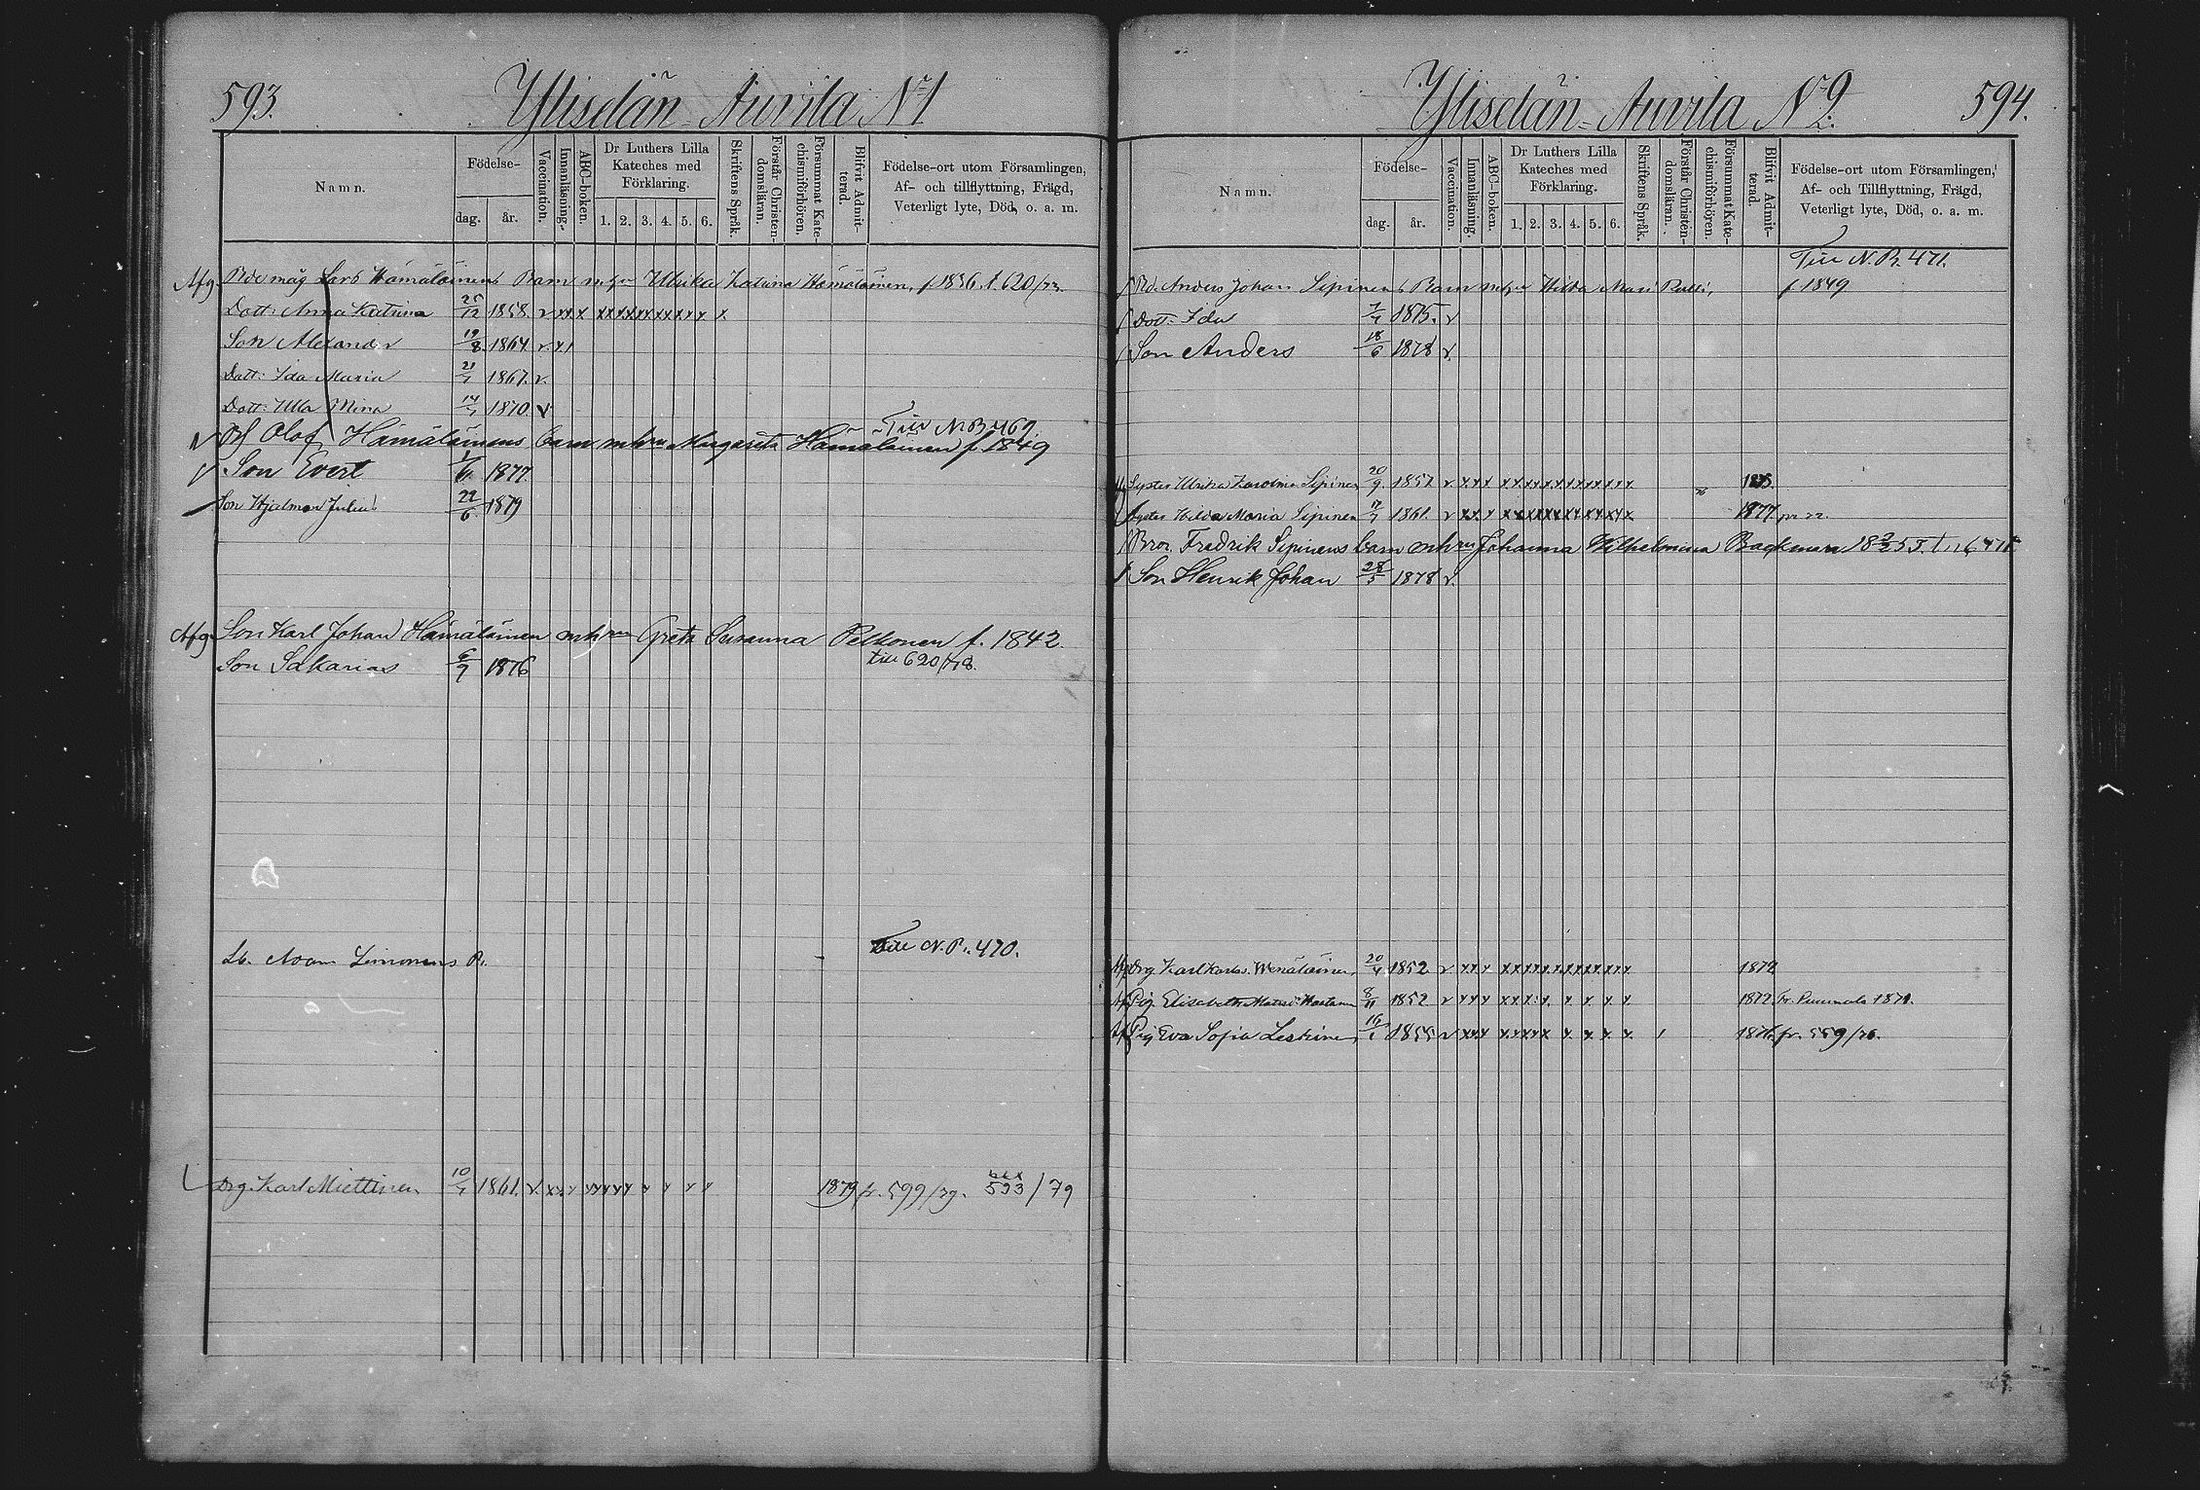 593.
Ylisdän Auvila No 1
Namn.
Födelse-
dag.
år.
Vaccination.
Innanläsning.
ABC-boken.
Dr Luthers Lilla Kateches med Förklaring.
1. 2. 3. 4. 5. 6.
Skriftens Språk.
Förstår Christendomsläran.
Försummat Katechismiförhören.
Blifvit Admitterad.
Födelse-ort utom Församlingen, Af- och tillflyttning, Frägd, Veterligt lyte, Död, o. a. m.
Afg. måg Lars Hämäläinens Barn Ulrika Katrina Hämäläinen, f. 1836. t. 620/73.
Dott: Anna Katrina 25/12 1858. v x x x x x x x x x x x x x x
Son Alexander 19/8 1864 v.
Dott: Ida Maria 21/7 1867. v.
Dott: Ulla Mina 14/7 1870 v
Till N.B. 469.
Olof Hämäläinens barn m hru Margareta Hämäläinen f. 1849
Son Evert 1/6 1877.
Son Hjalmar Julius 22/6 1879
Afg Son Karl Johan Hämäläinen m hru Greta Susanna Pelkonen f. 1842.
Son Sakarias 6/7 1876
till 620/78.
Till N.B. 470.
Adam Simonens B.
Drg. Karl Miettinen 10/7 1861. v x x x x x x x x x x 1879 fr. 599/79. 593/79
594.
Ylisdän Auvila No 2.
Namn.
Födelse-
dag.
år.
Vaccination.
Innanläsning.
ABC-boken.
Dr Luthers Lilla Kateches med Förklaring.
1. 2. 3. 4. 5. 6.
Skriftens Språk.
Förstår Christen-domsläran.
Försummat Kate-chismiförhören.
Blifvit Admit-terad.
Födelse-ort utom Församlingen, Af- och Tillflyttning, Frägd, Veterligt lyte, Död, o. a. m.
Till N.B. 471.
Anders Johan Sipinens Barn Hilda Mari f 1849
Dott: Ida 7/4 1875. v
Son Anders 18/6 1878 v.
Syster Ulrika Karolina Sipinen 20/9. 1857 v x x x x x x x x x x x x x x
Syster Hilda Maria Sipinen 17/7 1861. v x x x x x x x x x x x x x x 1877
Bror Fredrik Sipinens barn m hru Johanna Wilhelmina Backman
Son Henrik Johan 28/5 1878 v.
Drg Karl Wenäläinen 20/4 1852 v x x x x x x x x x x x x x x 1872
Pig. Elisabeth 8/11 1852 v x x x x x x x x x x x 1872 fr. Puumala 1871.
Pig Eva Sofia Leskinen 16/1 1855 v x x x x x x x x x x x 1876. fr. 559/76.